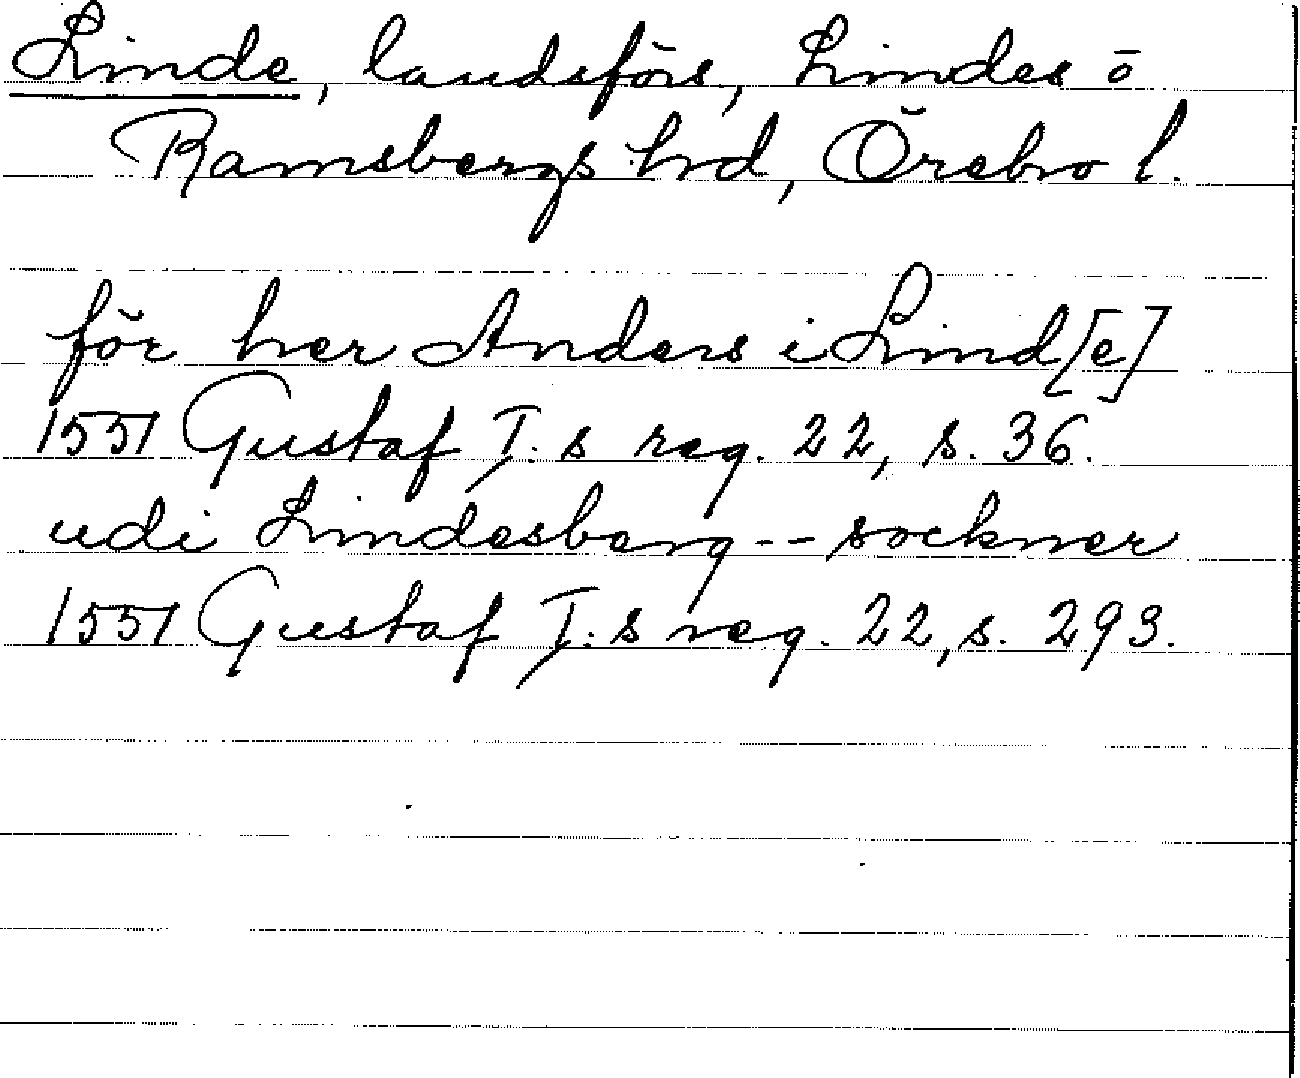 Linde, landsförs, Lindes o
Ramsbergs hrd, Örebro l.
för her Anders i Lind[e]
1551 Gustaf I:s reg. 22, s. 36.
udi Lindesberg -- sockner
1551 Gustaf I:s reg. 22, s. 293.